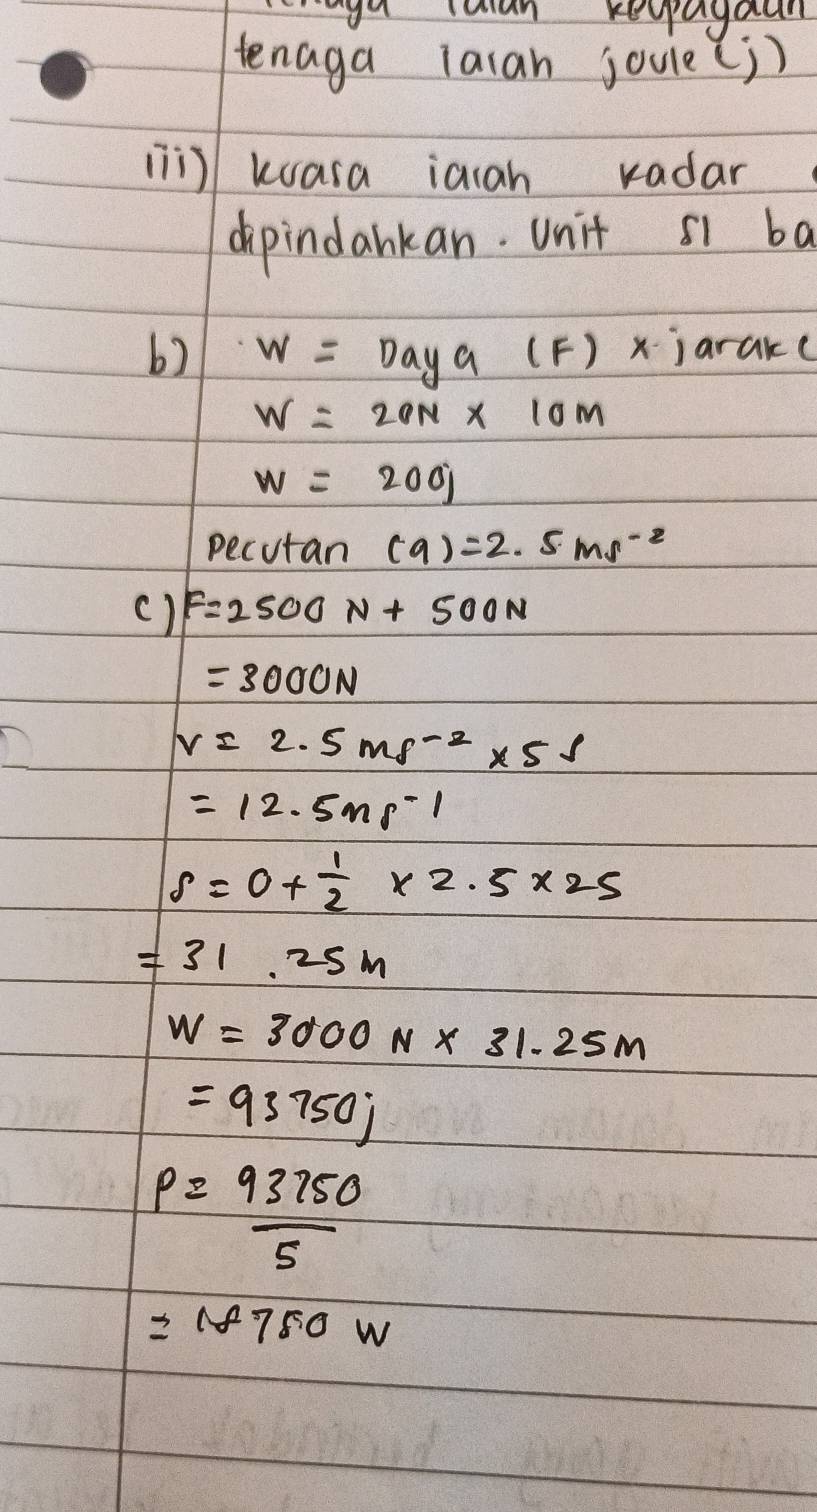 tenaga ialah joule (j)
iii) kuasa ialah kadar
dipindahkan. Unit SI ba
b) W = Daya (F) x jarak (
W = 20N x 10m
W = 200j
pecutan (a) = 2.5 ms⁻²
c) F = 2500 N + 500N
= 3000N
v = 2.5 ms⁻² x 5s
= 12.5ms⁻¹
s = 0 + 1/2 x 2.5 x 25
= 31.25m
W = 3000 N x 31.25m
= 93750j
P = 93750/5
= 18750 W